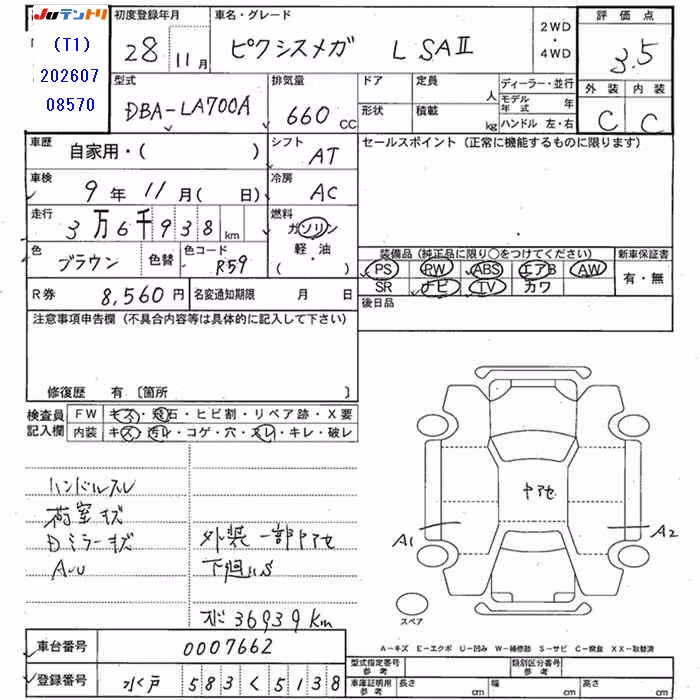 JUテントリ
(T1)
202607
08570
初度登録年月
28 11月
車名・グレード
ピクシスメガ L SAⅡ
2WD
・
4WD
評価点
3.5
外装 内装
C C
型式
DBA-LA700A
排気量
660 cc
ドア
形状
定員 人
積載 kg
ディーラー・並行
モデル年式 年
ハンドル 左・右
車歴
自家用・( )
シフト
AT
セールスポイント(正常に機能するものに限ります)
車検
9年11月( 日)
冷房
AC
走行
3万6千938km
燃料
ガソリン
軽・油
( )
色
ブラウン
色替
色コード
R59
装備品(純正品に限り○をつけてください)
新車保証書
PS PW ABS エアB AW
有・無
SR ナビ TV カワ
R券 8,560円
名変通知期限 月 日
後日品
注意事項申告欄(不具合内容等は具体的に記入して下さい)
修復歴 有〔箇所 〕
検査員
記入欄
FW キズ・飛石・ヒビ割・リペア跡・X要
内装 キズ・汚レ・コゲ・穴・スレ・キレ・破レ
ハンドルスレ
荷室キズ
Dミラーキズ
外装一部ヤケ色
下廻りS
36939km
ヤケ色
A1
A2
スペア
A-キズ E-エクボ U-凹み W-補修跡 S-サビ C-腐食 XX-取替済
車台番号 0007662
登録番号 水戸 583 く 5138
型式指定番号
参考
類別区分番号
参考
車庫証明用
参考
長さ cm
幅 cm
高さ cm